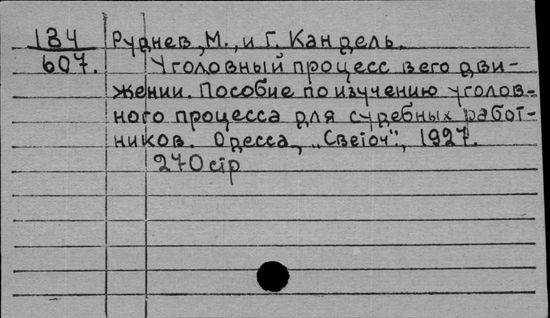 184 Руднев, М., и Г. Кандель.
607. Уголовный процесс в его дви-
жении. Пособие по изучению уголов-
ного процесса для судебных работ-
ников. Одесса, „Светоч", 1927.
270 стр